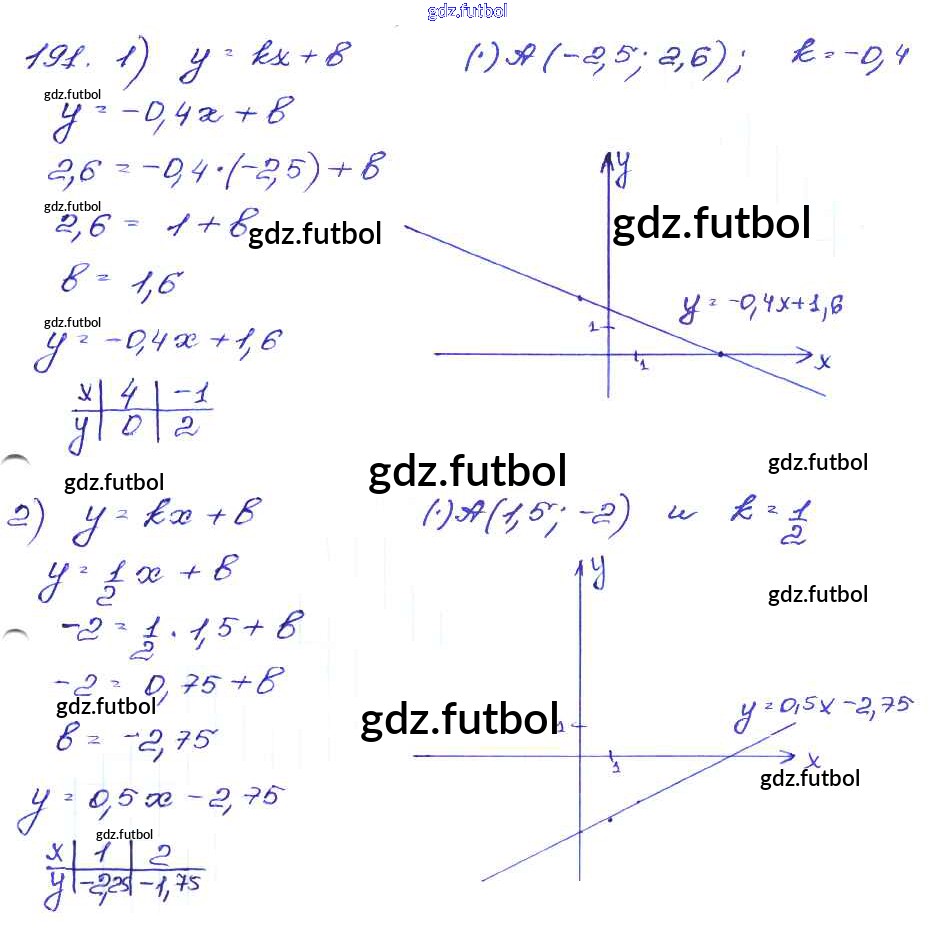 gdz.futbol
191. 1) y = kx + b (·) A (-2,5; 2,6); k = -0,4
gdz.futbol
y = -0,4x + b
2,6 = -0,4 · (-2,5) + b
gdz.futbol
2,6 = 1 + b
gdz.futbol
b = 1,6
gdz.futbol
y = -0,4x + 1,6
x | 4 | -1
y | 0 | 2
y
gdz.futbol
y = -0,4x + 1,6
1
1
x
gdz.futbol
gdz.futbol
gdz.futbol
2) y = kx + b (·) A (1,5; -2) и k = 1/2
y = 1/2 x + b
-2 = 1/2 · 1,5 + b
-2 = 0,75 + b
gdz.futbol
b = -2,75
y = 0,5x - 2,75
gdz.futbol
x | 1 | 2
y | -2,25 | -1,75
y
gdz.futbol
gdz.futbol
y = 0,5x - 2,75
1
1
x
gdz.futbol